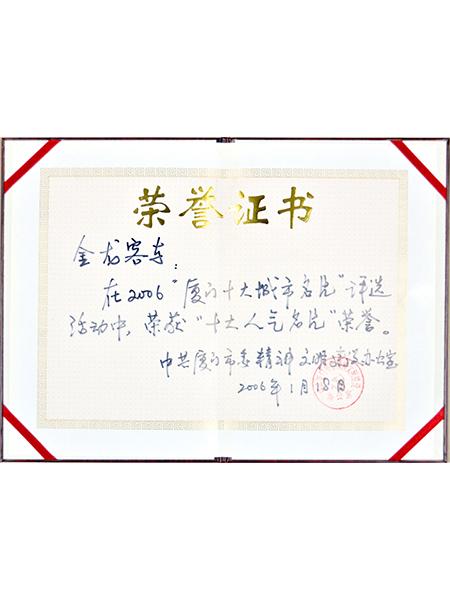 荣誉证书
金龙客车：
在2006“厦门十大城市名片”评选
活动中，荣获“十大人气名片”荣誉。
中共厦门市委精神文明建设办公室
2006年1月18日